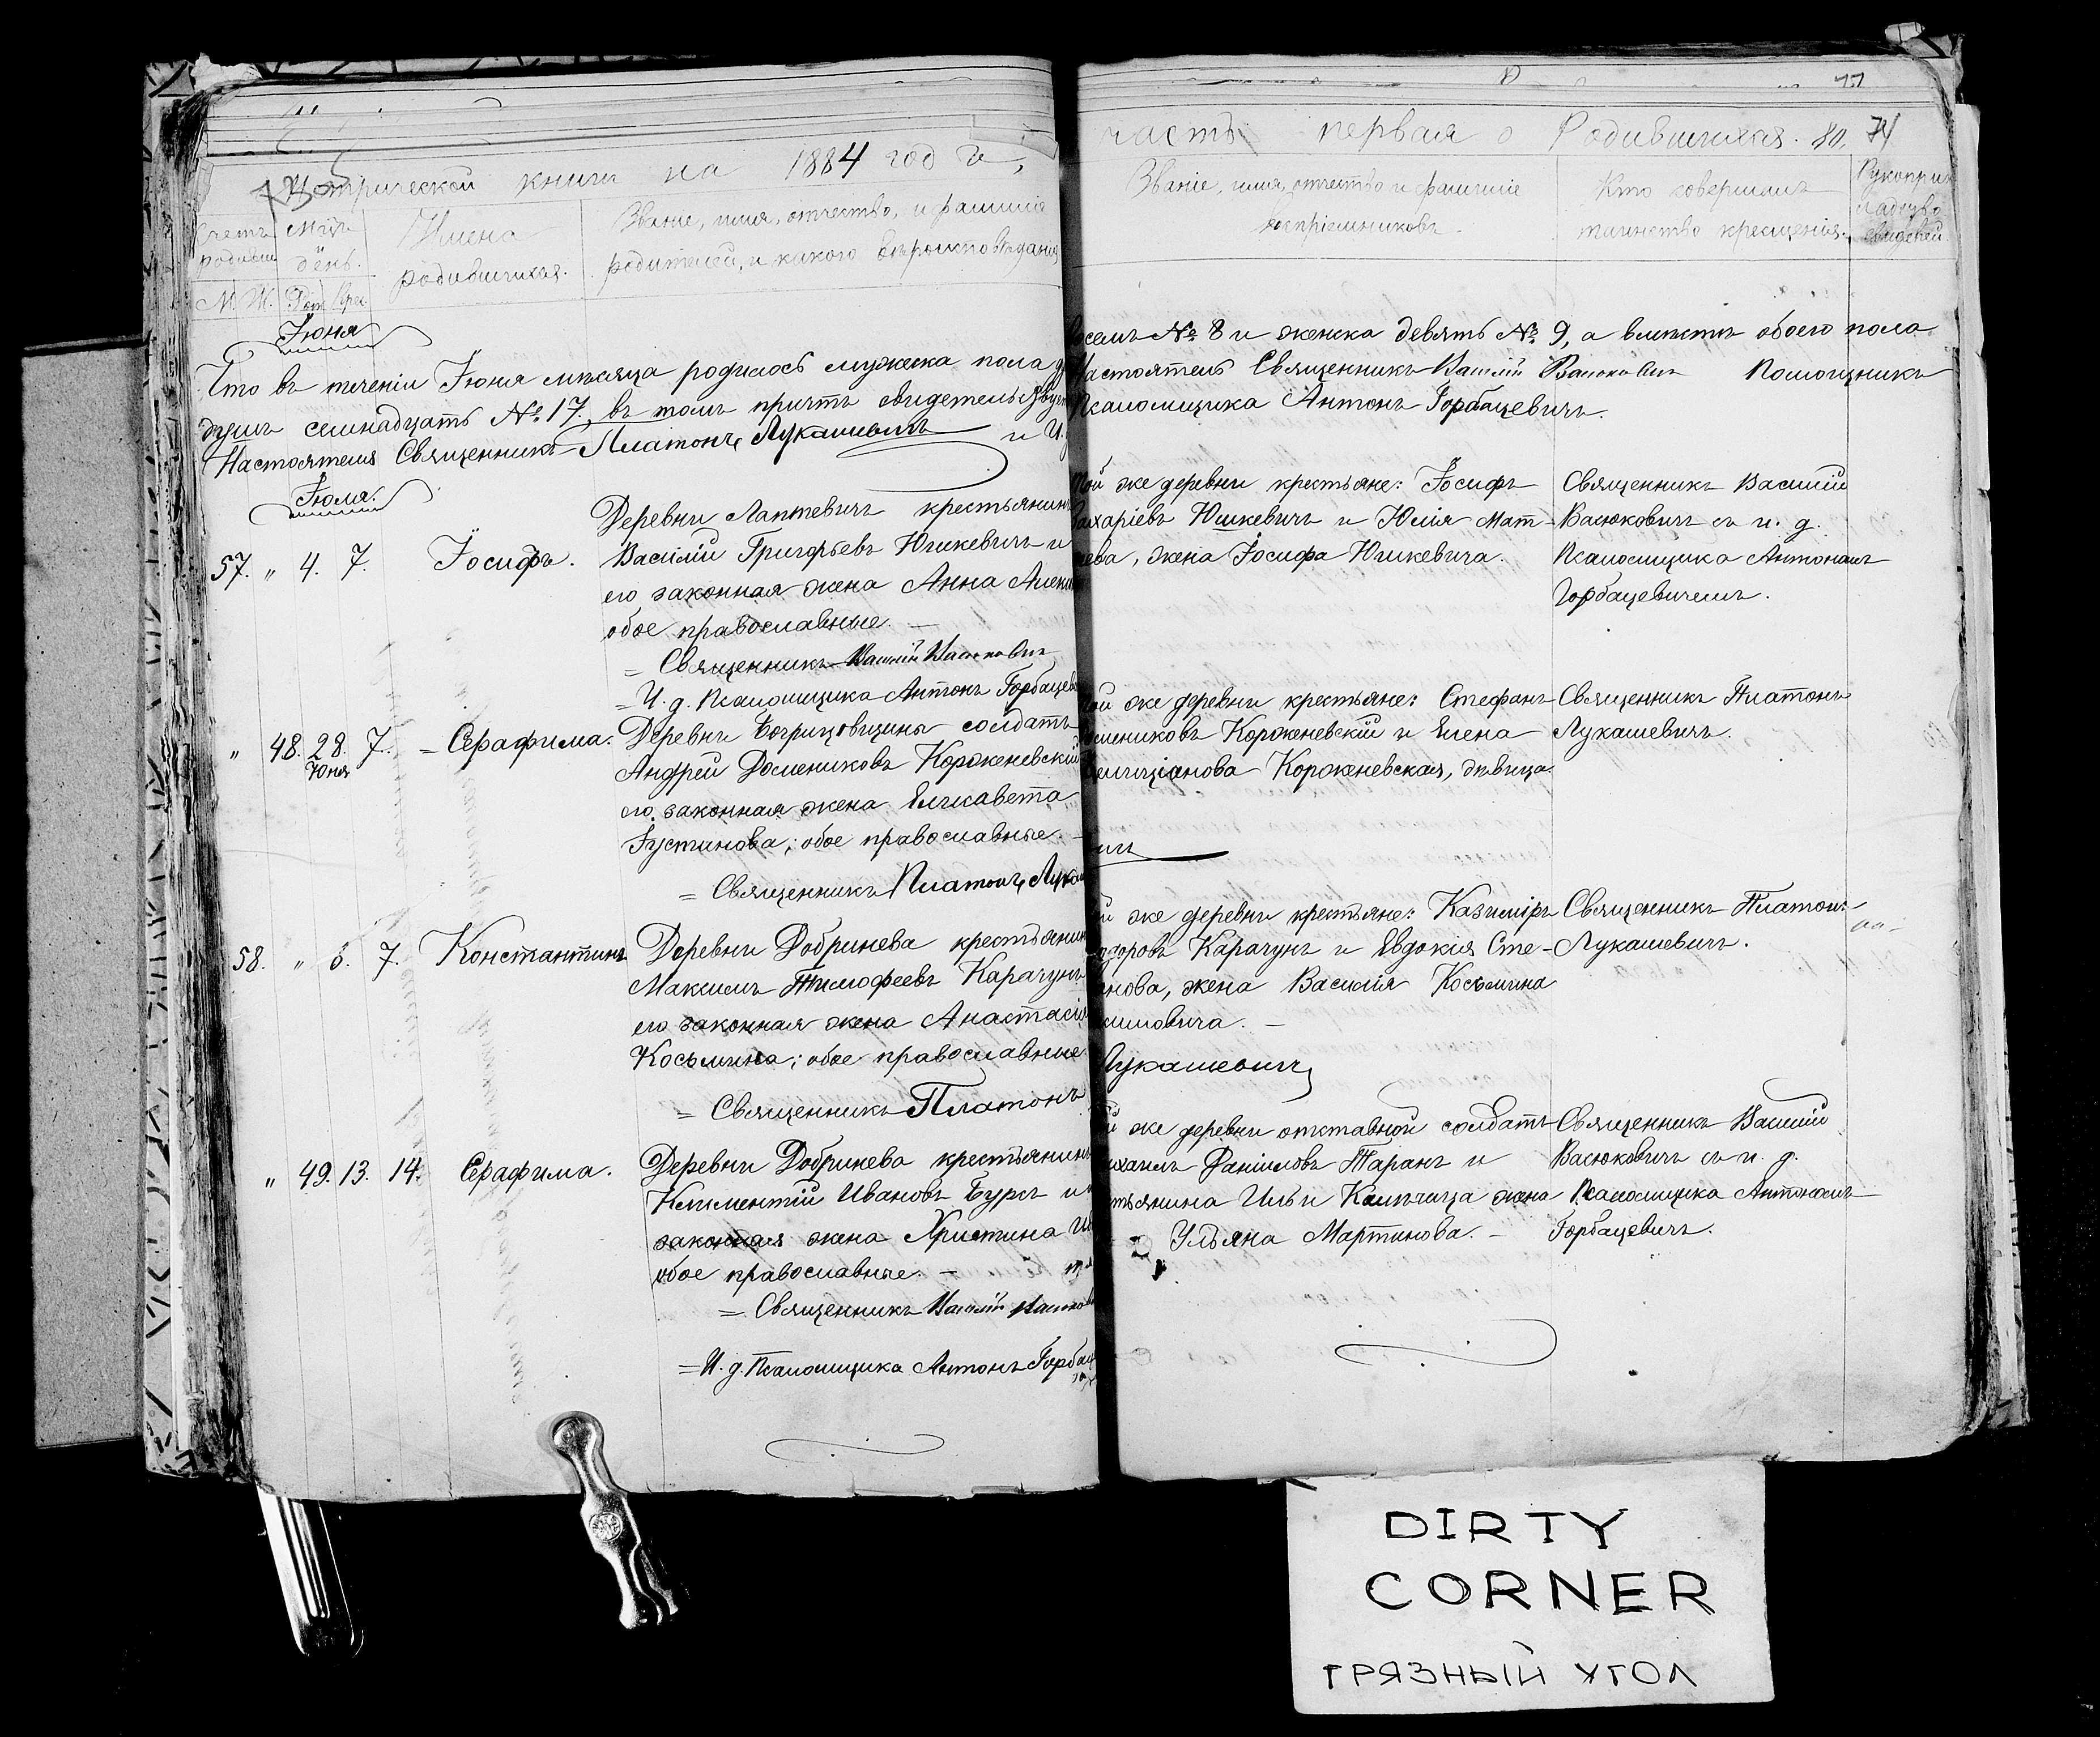 Метрической книги на 1884 годъ,
Счетъ родивш.
Мцъ день.
Имена родившихся.
Званіе, имя, отчество, и фамилія
родителей, и какого вѣроисповѣданія
М. Ж. Рож. Крещ.
Іюня
Что въ теченіи Іюня мѣсяца родилось мужеска пола
душъ семнадцать № 17, въ томъ причтъ свидетельствуетъ
Настоятеля Священникъ Платонъ Лукашевичъ и И.
Іюля.
57. " 4. 7. Іосифъ.
Деревни Лаптевичъ крестьянинъ
Василій Григорьевъ Юшкевичъ и
его законная жена Анна
обое православные. —
= Священникъ Василій Васюковичъ
= И. д. Псаломщика Антонъ Горбацев
" 48. 28. 7. = Серафима.
Юня
Деревни солдатъ
Андрей Домениковъ Короженевскій
его законная жена Елисавета
Іустинова; обое православные. —
= Священникъ Платонъ Лукаш
58. " 6. 7. Константинъ
Деревни Добринева крестьянин
Максимъ Тимофеевъ Карачунъ
его законная жена Анастасія
Косьмина; обое православные
= Священникъ Платонъ
" 49. 13. 14. Серафима.
Деревни Добринева крестьянинъ
Климентій Ивановъ Бурсъ и
законная жена Христина
обое православные. —
= Священникъ Василій Васюков
= И. д. Псаломщика Антонъ Горбац
77
часть первая о Родившихся. 80. 74
Званіе, имя, отчество и фамиліе
воспріемниковъ.
Кто совершалъ
таинство крещенія.
Рукоприкладство
свидѣтел.
восемъ № 8 и женска девять № 9, а вмѣстѣ обоего пола
Настоятель Священникъ Василій Васюковичъ Помощникъ
Псаломщика Антонъ Горбацевичъ.
той же деревни крестьяне: Іосифъ
Захаріевъ Юшкевичъ и Юлія Мат-
ѣева, жена Іосифа Юшкевича.
Священникъ Василій
Васюковичъ съ и. д.
Псаломщика Антономъ
Горбацевичемъ.
той же деревни крестьяне: Стефанъ
Домениковъ Короженевскій и Елена
Короженевская, дѣвица.
Священникъ Платонъ
Лукашевичъ.
ичъ
ой же деревни крестьяне: Казиміръ
одоровъ Карачунъ и Евдокія Сте-
анова, жена Василія Косьмина
симовича. —
Священникъ Платонъ
Лукашевичъ.
Лукашевичъ
ой же деревни отставной солдатъ
ихаилъ Даніиловъ Таранъ и
стьянина Ильи жена
Ульяна Мартинова. —
Священникъ Василій
Васюковичъ съ и. д.
Псаломщика Антономъ
Горбацевичъ.
DIRTY
CORNER
ГРЯЗНЫЙ УГОЛ